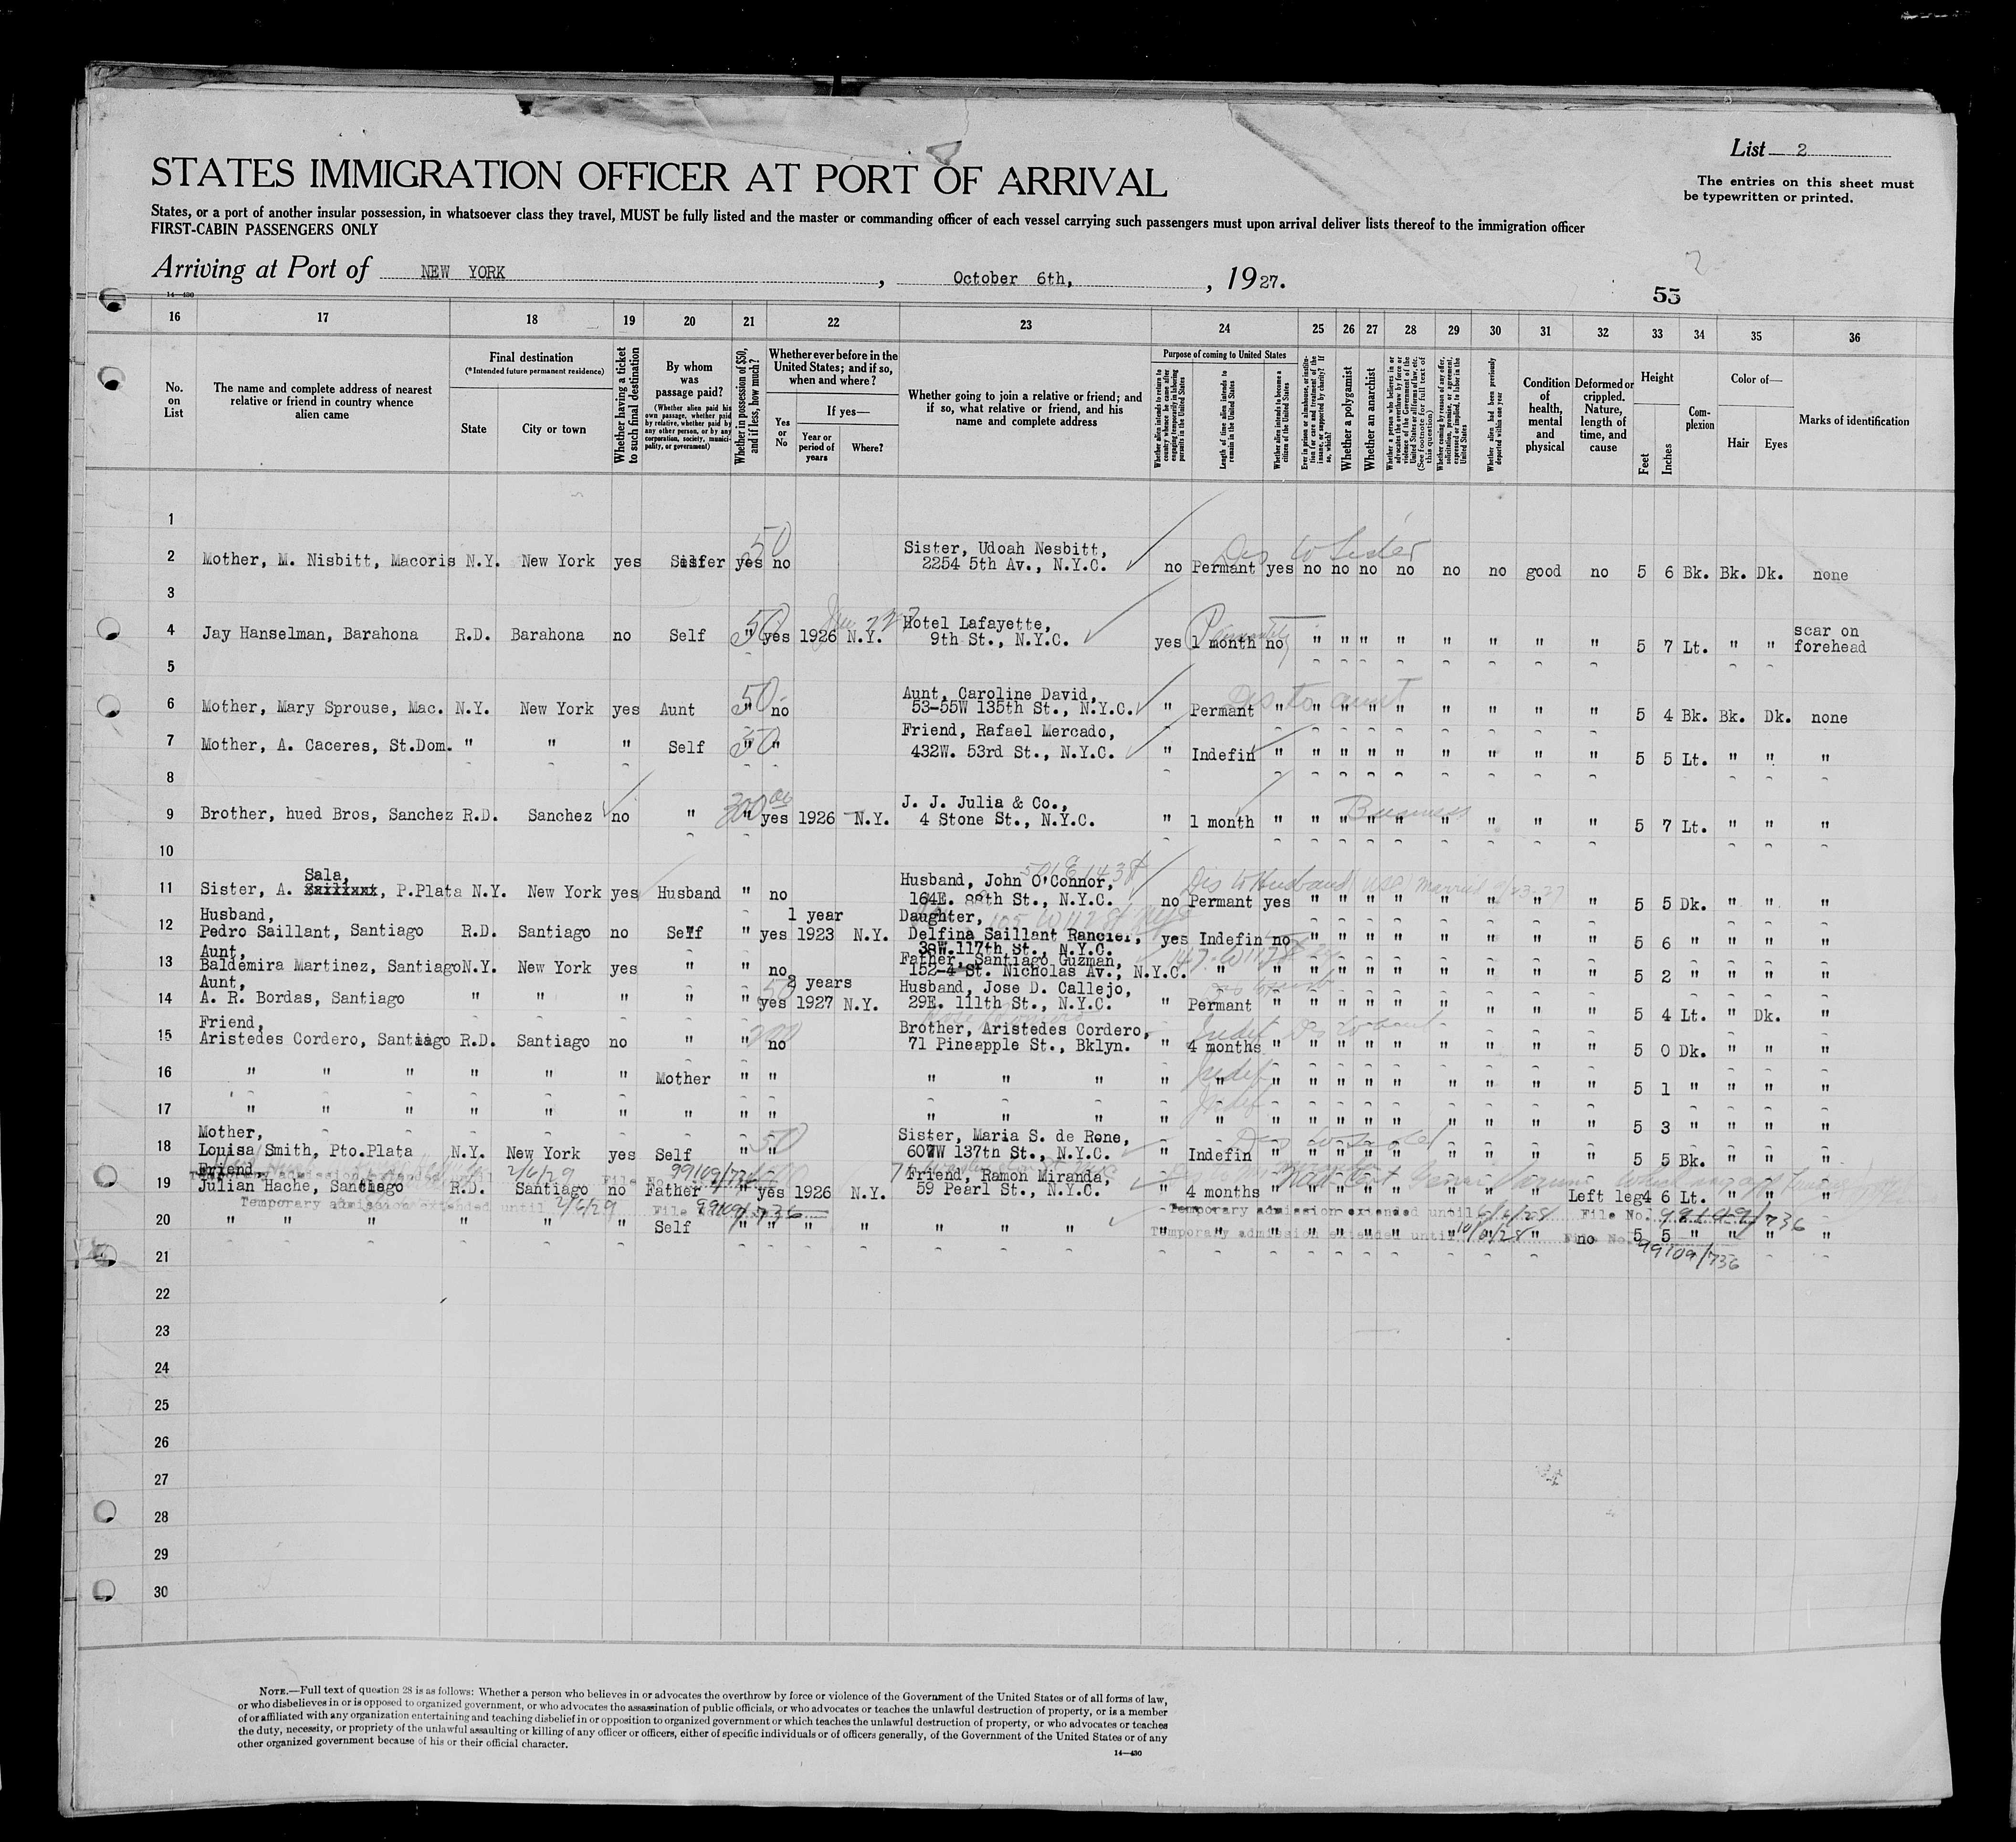 List 2
The entries on this sheet must
be typewritten or printed.
STATES IMMIGRATION OFFICER AT PORT OF ARRIVAL
States, or a port of another insular possession, in whatsoever class they travel, MUST be fully listed and the master or commanding officer of each vessel carrying such passengers must upon arrival deliver lists thereof to the immigration officer
FIRST-CABIN PASSENGERS ONLY
Arriving at Port of NEW YORK, October 6th, 1927.
55
14—430
16 17 18 19 20 21 22 23 24 25 26 27 28 29 30 31 32 33 34 35 36
No. on List
The name and complete address of nearest relative or friend in country whence alien came
Final destination
(*Intended future permanent residence)
State
City or town
Whether having a ticket to such final destination
By whom was passage paid?
(Whether alien paid his own passage, whether paid by relative, whether paid by any other person, or by any corporation, society, municipality, or government)
Whether in possession of $50, and if less, how much?
Whether ever before in the United States; and if so, when and where?
Yes or No
If yes—
Year or period of years
Where?
Whether going to join a relative or friend; and if so, what relative or friend, and his name and complete address
Purpose of coming to United States
Whether alien intends to return to country whence he came after engaging temporarily in laboring pursuits in the United States
Length of time alien intends to remain in the United States
Whether alien intends to become a citizen of the United States
Ever in prison or almshouse, or institution for care and treatment of the insane, or supported by charity? If so, which?
Whether a polygamist
Whether an anarchist
Whether a person who believes in or advocates the overthrow by force or violence of the Government of the United States or all forms of law, etc. (See footnote for full text of this question)
Whether coming by reason of any offer, solicitation, promise, or agreement, expressed or implied, to labor in the United States
Whether alien had been previously deported within one year
Condition of health, mental and physical
Deformed or crippled. Nature, length of time, and cause
Height
Feet
Inches
Complexion
Color of—
Hair
Eyes
Marks of identification
1
2 Mother, M. Nisbitt, Macoris N.Y. New York yes yes no 50 Sister, Udoah Nesbitt, 2254 5th Av., N.Y.C. no Permant yes no no no no no no good no 5 6 Bk. Bk. Dk. none
Dis to Sister
3
4 Jay Hanselman, Barahona R.D. Barahona no Self " 50 yes 1926 N.Y. Hotel Lafayette, 9th St., N.Y.C. yes 1 month no " " " " " " " " 5 7 Lt. " " scar on forehead
5
6 Mother, Mary Sprouse, Mac. N.Y. New York yes Aunt " 50 no Aunt, Caroline David, 53-55W 135th St., N.Y.C. " Permant " " " " " " " " " 5 4 Bk. Bk. Dk. none
Dis to aunt
7 Mother, A. Caceres, St.Dom. " " " Self " 50 " Friend, Rafael Mercado, 432W. 53rd St., N.Y.C. " Indefin " " " " " " " " " 5 5 Lt. " " "
8
9 Brother, hued Bros, Sanchez R.D. Sanchez no " " 300 yes 1926 N.Y. J. J. Julia & Co., 4 Stone St., N.Y.C. " 1 month " " " " " " " " " 5 7 Lt. " " "
Business
10
11 Sister, A. Sala, P.Plata N.Y. New York yes Husband " no Husband, John O'Connor, 164E. 88th St., N.Y.C. no Permant yes " " " " " " " " 5 5 Dk. " " "
501 E 143 St
Dis to Husband married 9/23-27
12 Husband, Pedro Saillant, Santiago R.D. Santiago no Self " yes 1 year 1923 N.Y. Daughter, Delfina Saillant Rancier, 38W.117th St., N.Y.C. yes Indefin no " " " " " " " " 5 6 " " " "
13 Aunt, Baldemira Martinez, Santiago N.Y. New York yes " " no Father, Santiago Guzman, 152-4 St. Nicholas Av., N.Y.C. " " " " " " " " " " 5 2 " " " "
14 Aunt, A. R. Bordas, Santiago " " " " " yes 2 years 1927 N.Y. Husband, Jose D. Callejo, 29E. 111th St., N.Y.C. " Permant " " " " " " " " " 5 4 Lt. " Dk. "
15 Friend, Aristedes Cordero, Santiago R.D. Santiago no " " 200 no Brother, Aristedes Cordero, 71 Pineapple St., Bklyn. " 4 months " " " " " " " " " 5 0 Dk. " " "
16 " " " " " " Mother " " " " " " " " " " " " " " " " 5 1 " " " "
Indef
17 " " " " " " " " " " " " " " " " " " " " " " " 5 3 " " " "
Indef
18 Mother, Louisa Smith, Pto.Plata N.Y. New York yes Self " " 50 Sister, Maria S. de Rone, 607W 137th St., N.Y.C. " Indefin " " " " " " " " " 5 5 Bk. " " "
Temporary admission 2/6/29 File No. 99109/736
19 Friend, Julian Hache, Santiago R.D. Santiago no Father " yes 1926 N.Y. Friend, Ramon Miranda, 59 Pearl St., N.Y.C. " 4 months " " " " " " " " Left leg 4 6 Lt. " " "
Temporary admission extended until 2/6/29 File No. 99109/736
Temporary admission extended until 6/6/28 File No. 99109/736
20 " " " " " " Self " " " " " " " " " " " " " " " " no 5 5 " " " "
Temporary admission extended until 10/6/28 File No. 99109/736
21
22
23
24
25
26
27
28
29
30
NOTE.—Full text of question 28 is as follows: Whether a person who believes in or advocates the overthrow by force or violence of the Government of the United States or of all forms of law,
or who disbelieves in or is opposed to organized government, or who advocates the assassination of public officials, or who advocates or teaches the unlawful destruction of property, or is a member
of or affiliated with any organization entertaining and teaching disbelief in or opposition to organized government or which teaches the unlawful destruction of property, or who advocates or teaches
the duty, necessity, or propriety of the unlawful assaulting or killing of any officer or officers, either of specific individuals or of officers generally, of the Government of the United States or of any
other organized government because of his or their official character.
14—430